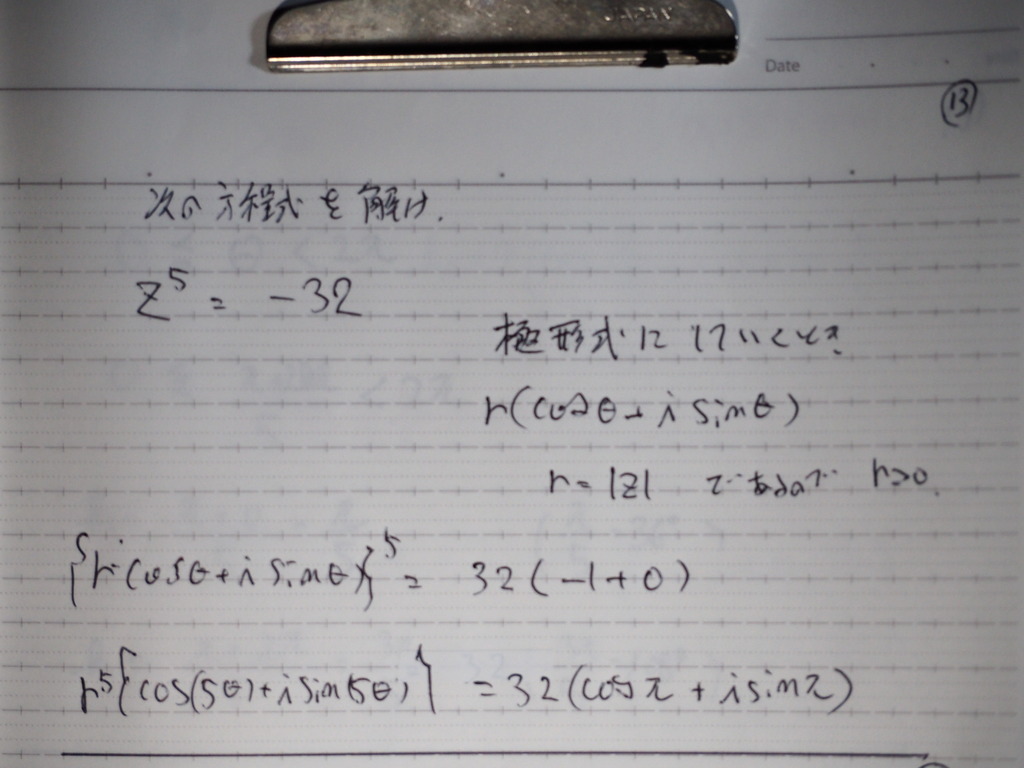 JAPAN
Date
⑬
次の方程式を解け.
z⁵ = -32
極形式にしていくとき.
r(cosθ + i sinθ)
r = |z| であるので r>0.
{r(cosθ + i sinθ)}⁵ = 32(-1+0)
r⁵{cos(5θ) + i sin(5θ)} = 32(cosπ + i sinπ)